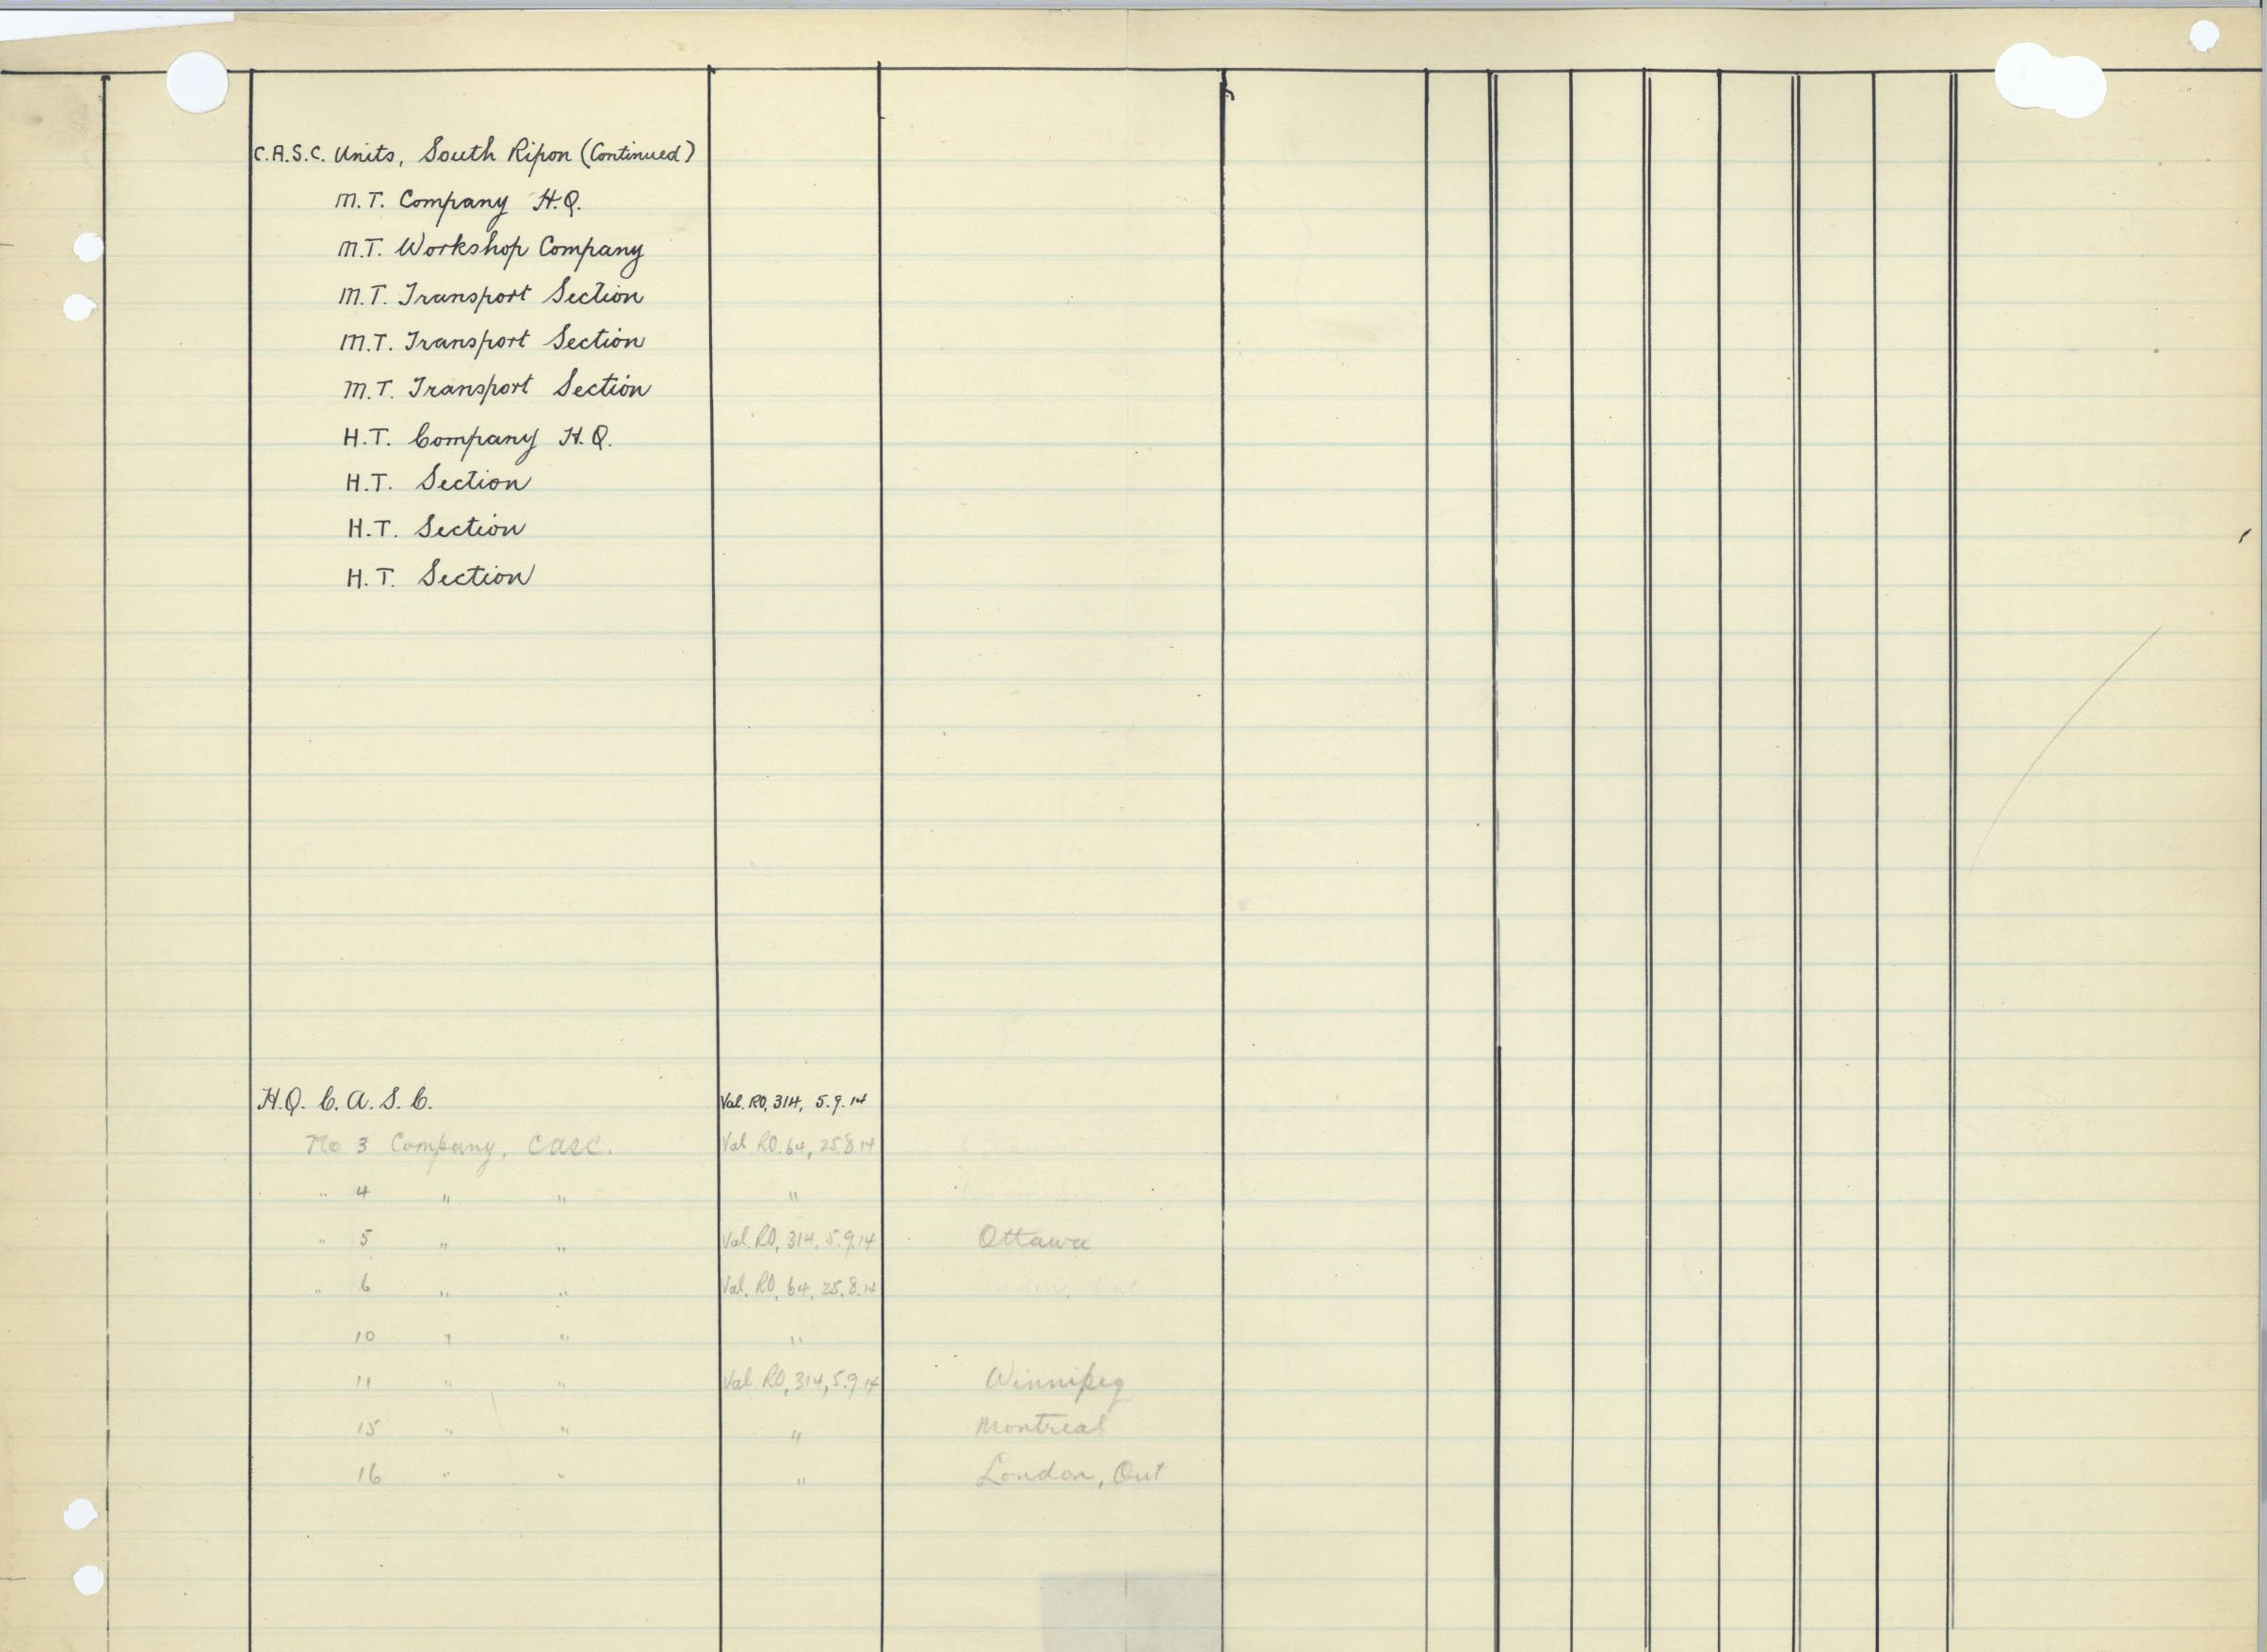 C.A.S.C. Units, South Ripon (Continued)
M.T. Company H.Q.
M.T. Workshop Company
M.T. Transport Section
M.T. Transport Section
M.T. Transport Section
H.T. Company H.Q.
H.T. Section
H.T. Section
H.T. Section
H.Q. C.A.S.C. Val. RO, 314, 5.9.14
No 3 Company, CASC. Val. RO. 64, 25.8.14
" 4 " " "
" 5 " " Val. RO, 314, 5.9.14 Ottawa
" 6 " " Val. RO, 64, 25.8.14
10 " " "
11 " " Val. RO, 314, 5.9.14 Winnipeg
15 " " " Montreal
16 " " " London, Ont